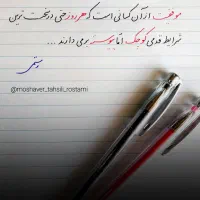 موفقیت از آن کسانی است که هر روز حتی در سخت ترین
شرایط قدمی کوچک اما پیوسته برمی دارند ...
رستمی
@moshaver_tahsili_rostami